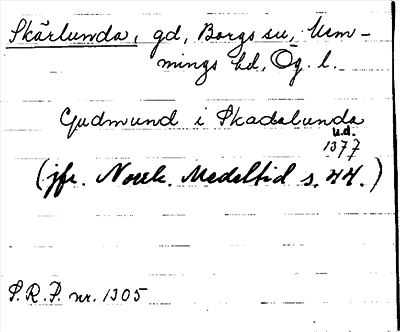 Skärlunda, gd, Borgs sn, Mem-
mings hd, Ög. l.
Gudmund i Skadalunda
u.d.
1377
(jfr. Nork. Medeltid s. 44.)
S.R.P. nr. 1305